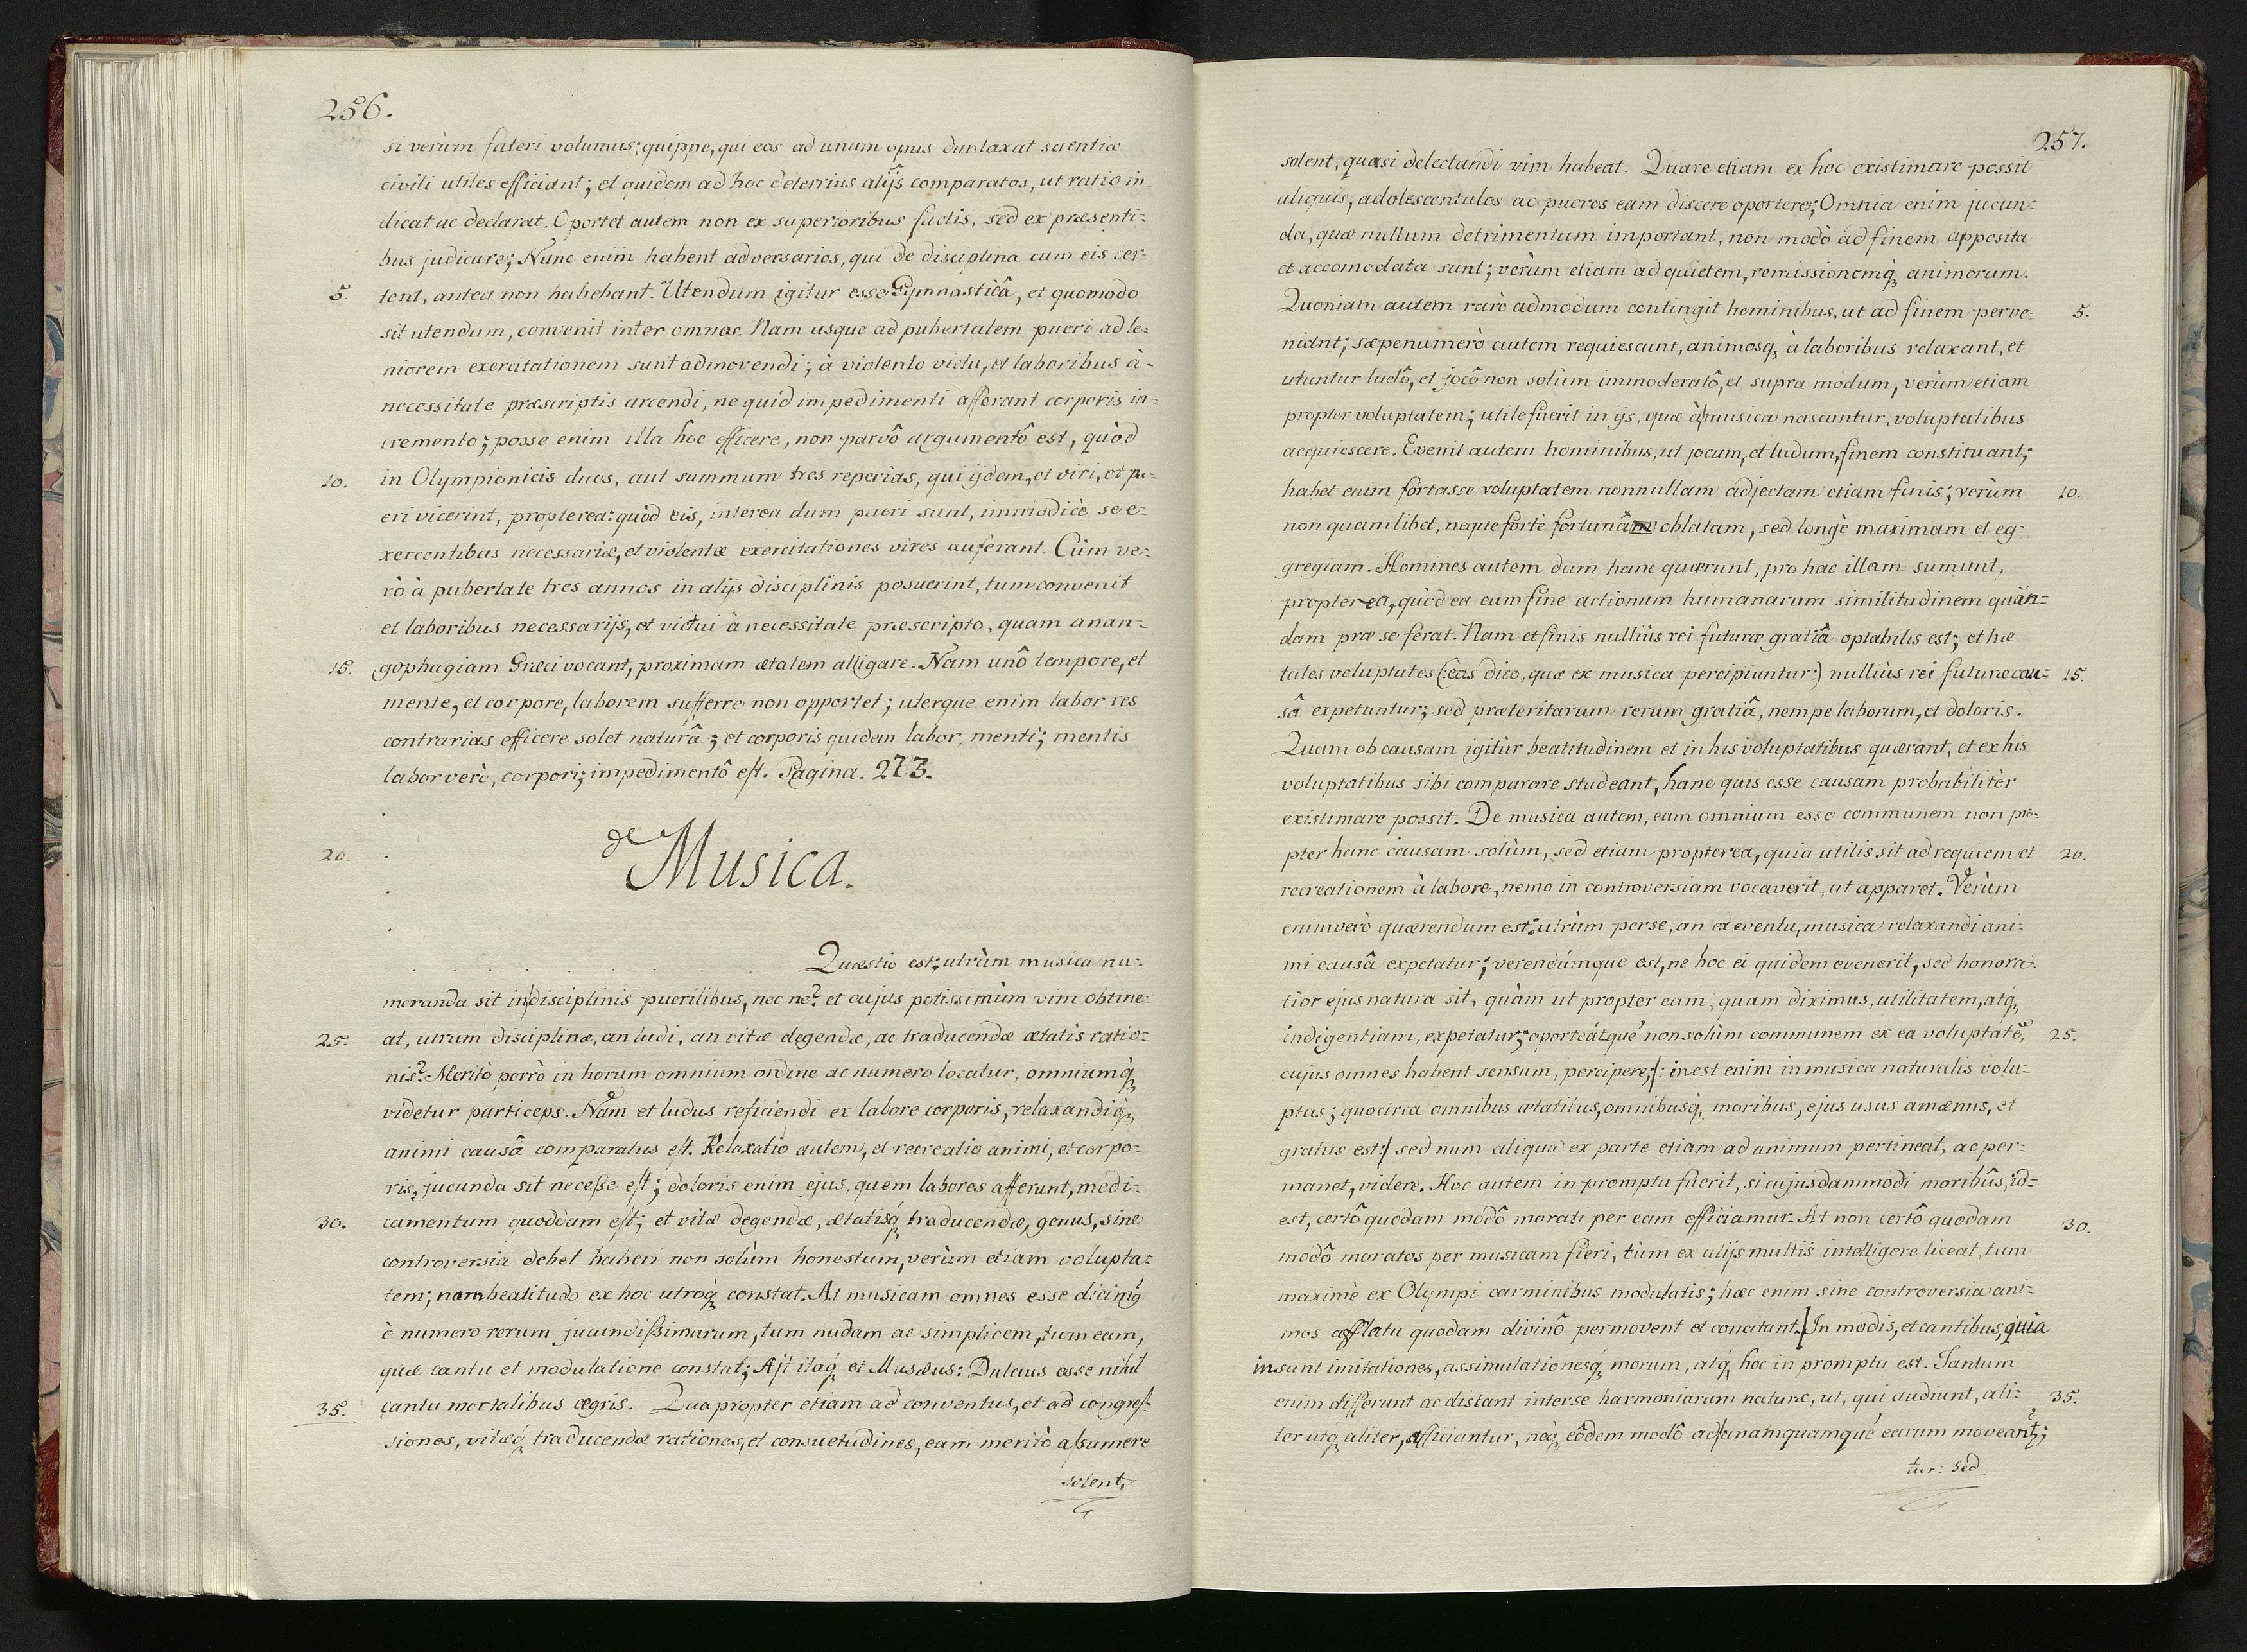 256.
si verùm fateri volumus; quippe, qui eos ad unum opus duntaxat scientiæ
civili utiles efficiant; et quidem ad hoc deterrius alijs comparatos, ut ratio in-
dicat ac declarat. Oportet autem non ex superioribus factis, sed ex præsenti-
bus judicare; Nunc enim habent adversarios, qui de disciplina cum eis cer-
5. tent, antea non habebant. Utendum igitur esse Gymnasticâ, et quomodo
sit utendum, convenit inter omnes. Nam usque ad pubertatem pueri ad le-
niorem exercitationem sunt admovendi; à violento victu, et laboribus à-
necessitate præscriptis arcendi, ne quid impedimenti afferant corporis in-
cremento; posse enim illa hoc efficere, non parvô argumentô est, quòd
10. in Olympionicis duos, aut summum tres reperias, qui ijdem, et viri, et pu-
eri vicerint, propterea: quòd eis, interea dum pueri sunt, immodicè se e-
xercentibus necessariæ, et violentæ exercitationes vires auferant. Cùm ve-
rò à pubertate tres annos in alijs disciplinis posuerint, tum convenit
et laboribus necessarijs, et victui à necessitate præscripto, quam anan-
15. gophagiam Græci vocant, proximam ætatem alligare. Nam unô tempore, et
mente, et corpore, laborem sufferre non opportet; uterque enim labor res
contrarias efficere solet naturâ; et corporis quidem labor, menti; mentis
labor verò, corpori; impedimentô est. Pagina. 273.
20.
de Musica.
Quæstio est; utrùm musica nu-
meranda sit in disciplinis puerilibus, nec ne? et cujus potissimùm vim obtine-
25. at, utrum disciplinæ, an ludi, an vitæ degendæ, ac traducendæ ætatis ratio-
nis? Meritò porrò in horum omnium ordine ac numero locatur, omniumq̀
videtur particeps. Nam et ludus reficiendi ex labore corporis, relaxandiq̀,
animi causâ comparatus est. Relaxatio autem, et recreatio animi, et corpo-
ris, jucunda sit necesse est; doloris enim ejus, quem labores afferunt, medi-
30. camentum quoddam est; et vitæ degendæ, ætatisq́ traducendæ, genus, sine
controversia debet haberi non solùm honestum, verùm etiam volupta-
tem; nam beatitudo ex hoc utroq́ constat. At musicam omnes esse dicimꝰ
è numero rerum jucundissimarum, tum nudam ac simplicem, tum eam,
quæ cantu et modulatione constat; Ajt itaq́ et Musæus: Dulcius esse nihil
35. cantu mortalibus ægris. Quapropter etiam ad conventus, et ad congres-
siones, vitæq́ traducendæ rationes, et consuetudines, eam meritò assumere
solent,
257.
solent, quasi delectandi vim habeat. Quare etiam ex hoc existimare possit
aliquis, adolescentulos ac pueros eam discere oportere; Omnia enim jucun-
da, quæ nullum detrimentum important, non modò ad finem apposita
et accomodata sunt; verùm etiam ad quietem, remissionemq̀, animorum.
Quoniam autem rarò admodum contingit hominibus, ut ad finem perve- 5.
niant; sæpenumerò autem requiescunt, animosq, à laboribus relaxant, et
utuntur ludô, et jocô non solùm immoderatô, et supra modum, verùm etiam
propter voluptatem; utile fuerit in ijs, quæ à musica nascuntur, voluptatibus
acquiescere. Evenit autem hominibus, ut jocum, et ludum, finem constituant;
habet enim fortasse voluptatem nonnullam adjectam etiam finis; verùm 10.
non quamlibet, neque fortè fortunâ oblatam, sed longè maximam et eg-
gregiam. Homines autem dum hanc quærunt, pro hac illam sumunt,
propterea, quòd ea cum fine actionum humanarum similitudinem quan-
dam præ se ferat. Nam et finis nulliùs rei futuræ gratiâ optabilis est; et hæ
tales voluptates (: eas dico, quæ ex musica percipiuntur :) nulliùs rei futuræ cau- 15.
sâ expetuntur; sed præteritarum rerum gratiâ, nempe laborum, et doloris.
Quam ob causam igitùr beatitudinem et in his voluptatibus quærant, et ex his
voluptatibus sibi comparare studeant, hanc quis esse causam probabilitèr
existimare possit. De musica autem, eam omnium esse communem non pro-
pter hanc causam solùm, sed etiam propterea, quia utilis sit ad requiem et 20.
recreationem à labore, nemo in controversiam vocaverit, ut apparet. Verùm
enimverò quærendum est; utrùm per se, an ex eventu, musica relaxandi ani-
mi causâ expetatur; verendúmque est, ne hoc ei quidem evenerit, sed honora-
tior ejus natura sit, quàm ut propter eam, quam diximus, utilitatem, atq́,
indigentiam, expetatur; oporteátque non solùm communem ex ea voluptatē, 25.
cujus omnes habent sensum, percipere; /: inest enim in musica naturalis volu-
ptas; quocirca omnibus ætatibus, omnibusq̀, moribus, ejus usus amænus, et
gratus est :/ sed num aliqua ex parte etiam ad animum pertineat, ac per-
manet, videre. Hoc autem in promptu fuerit, si cujusdammodi moribûs, id-
est, certô quodam modô morati per eam efficiamur. At non certô quodam 30.
modô moratos per musicam fieri, tùm ex alijs multis intelligere liceat, tum
maximè ex Olympi carminibus modulatis; hæc enim sine controversia ani-
mos afflatu quodam divinô permovent et concitant. In modis, et cantibus, quia
insunt imitationes, assimulationesq́, morum, atq́, hoc in promptu est. Tantum
enim differunt ac distant inter se harmoniarum naturæ, ut, qui audiunt, ali- 35.
ter atq́, aliter, afficiantur, neq̀, eôdem modô ad unamquamqué earum moveant;
tur: Sed